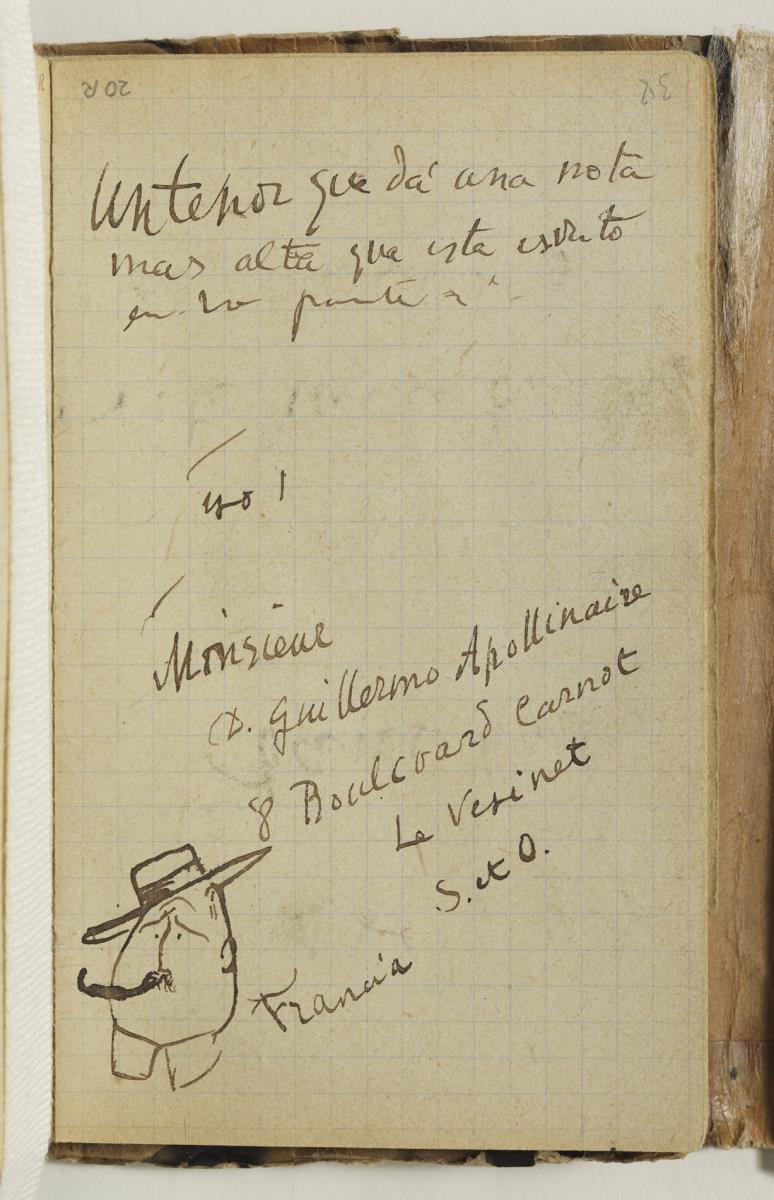 20 R
Un tenor que dá una nota
mas alta que esta escrito
en la
yo!
Monsieur
D. Guillermo Apollinaire
8 Boulevard Carnot
Le Vesinet
S. et O.
Francia